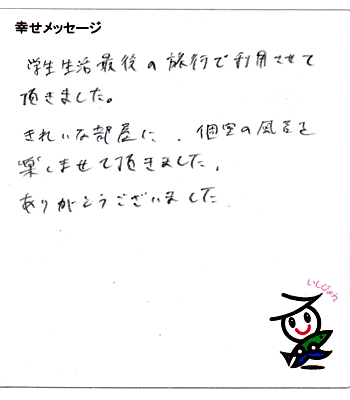 幸せメッセージ
学生生活最後の旅行で利用させて
頂きました。
きれいな部屋に、個室の風呂を
楽しませて頂きました。
ありがとうございました。